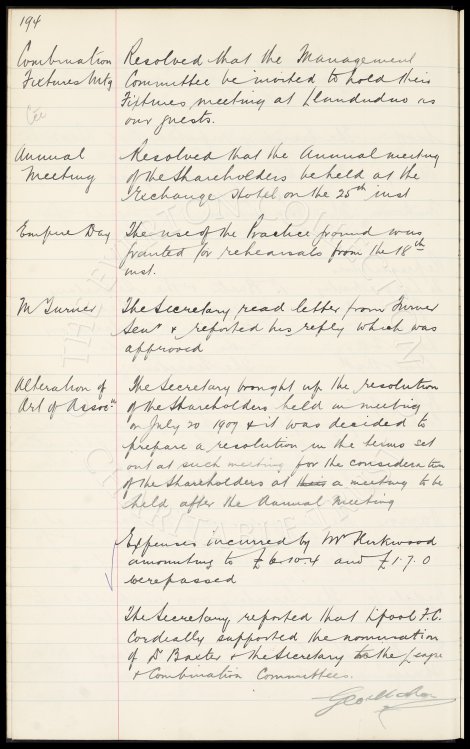 194
Combination
Fixtures Mtg
Resolved that the Management
Committee be invited to hold their
Fixtures meeting at Llandudno as
our guests.
Annual
Meeting
Resolved that the Annual meeting
of the Shareholders be held at the
Exchange Hotel on the 25th inst
Empire Day
The use of the Practice ground was
granted for rehearsals from the 18th
inst.
M Turner
The Secretary read letter from Turner
Senr & reported his reply which was
approved
Alteration of
Art of Assocn
The Secretary brought up the resolution
of the Shareholders held in meeting
on July 20 1909 & it was decided to
prepare a resolution in the terms set
out at such meeting for the consideration
of the Shareholders at a meeting to be
held after the Annual Meeting
Expenses incurred by Mr Kirkwood
amounting to £6.10.4 and £1.7.0
were passed
The Secretary reported that L'pool F.C.
Cordially supported the nomination
of Dr Baxter & the Secretary to the League
& Combination Committees.
THE EVERTON COLLECTION
CHARITABLE TRUST